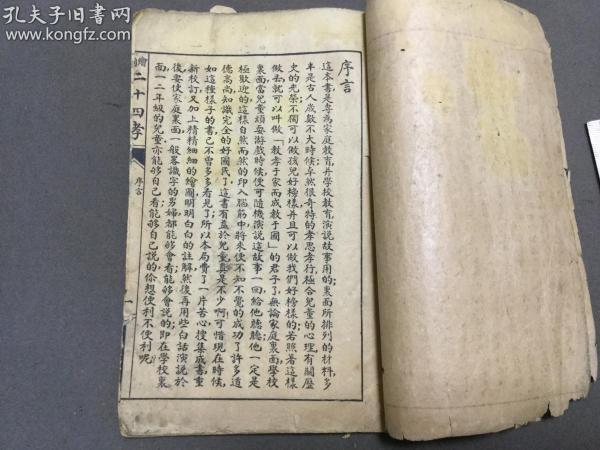 孔夫子旧书网
www.kongfz.com
序言
這本書是專為家庭教育幷學校教育演說故事用的裏面所排列的材料多
半是古人歲數不大時候卓然很奇特的孝思孝行極合兒童的心理有關歷
史的光榮不獨可以做孩兒好榜樣并且可以做我們好榜樣的若照着這樣
做去就可以叫做「教孝于家而成教于國」的君子了無論家庭裏面學校
裏面當兒童頑耍游戲時候便可隨機演說這故事一回給他聽聽他一定是
極歡迎的這樣自然而然的印入腦筋中將來便不知不覺的成功了許多道
德高尚知識完全的好國民了這書有益於兒童真是不少啊可惜現在時候
如這種樣子的書已不曾多多看見了所以本局費了一片苦心搜集成書重
新校訂又加上精精細細的繪圖明明白白的註解然後再用些白話演說於
後要使家庭裏面一般畧識字的男婦都能够會看能够會說的即在學校裏
面一二年級的兒童亦能够自己看能够自己說的你想便利不便利呢
繪
二十四孝
序言
一